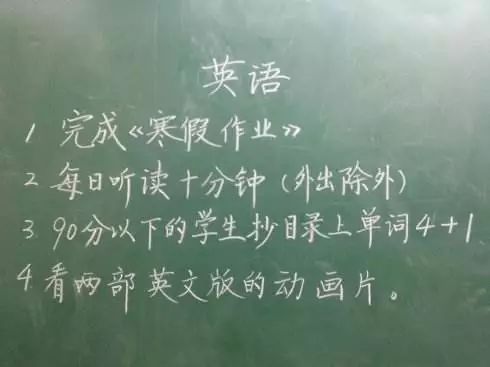 英语
1 完成《寒假作业》
2 每日听读十分钟（外出除外）
3 90分以下的学生抄目录上单词4+1
4 看两部英文版的动画片。